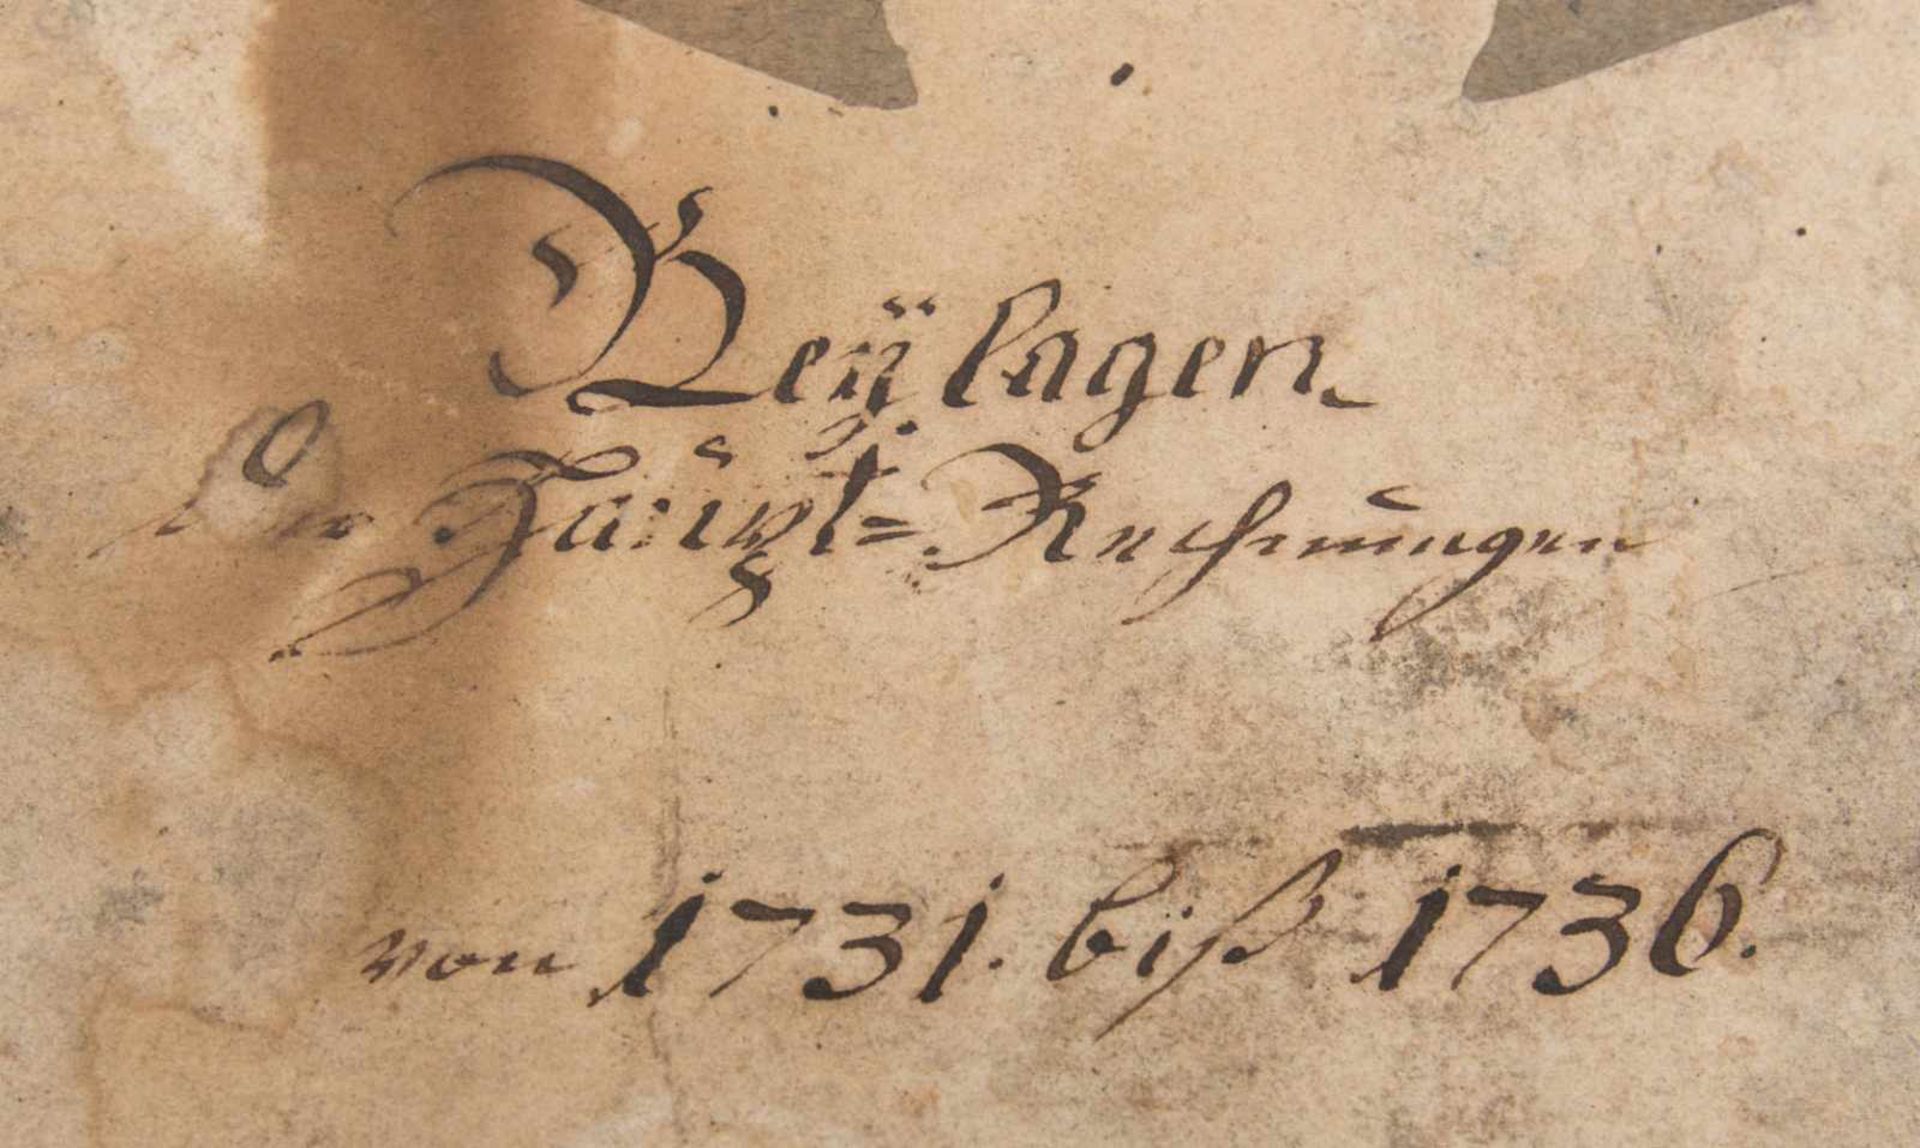 Beÿlagen
der Haupt=Rechnungen
von 1731. biß 1736.